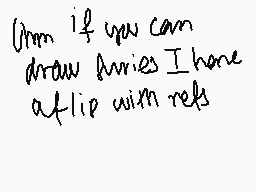 Umm if you can
draw furries I have
a flip with refs